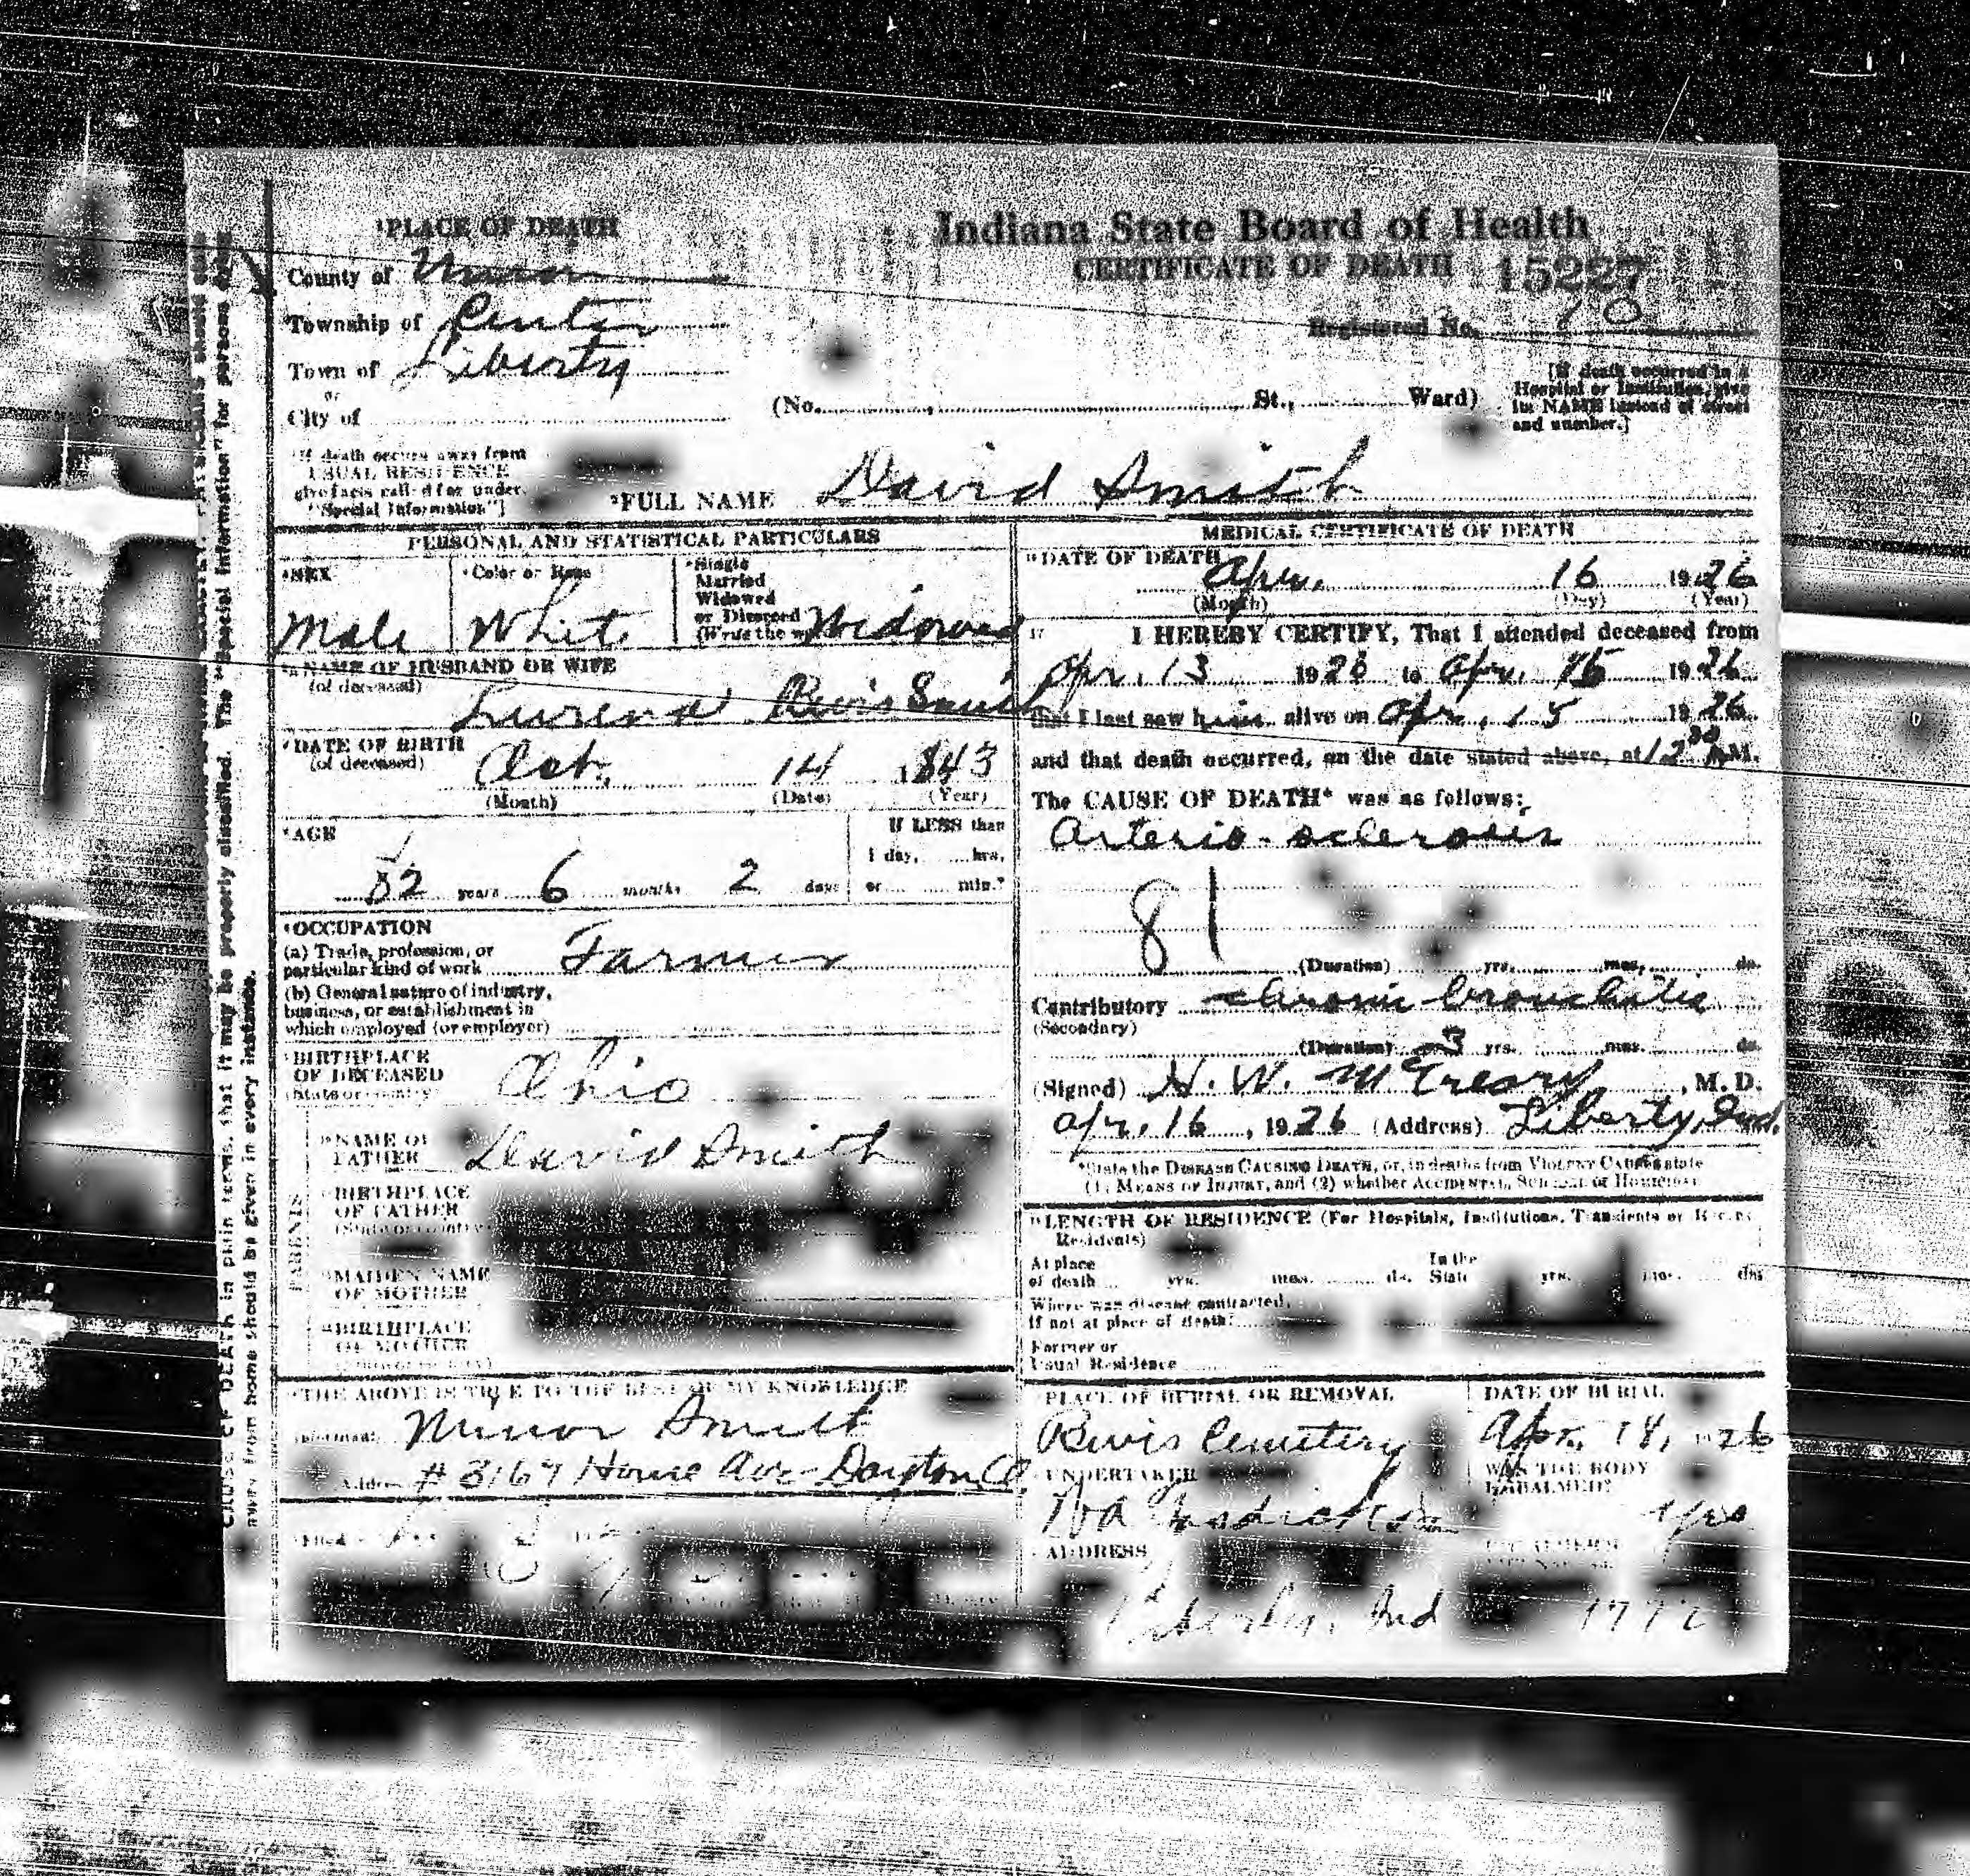 PLACE OF DEATH
County of Union
Township of Center
Town of Liberty
or
City of
Indiana State Board of Health
CERTIFICATE OF DEATH 15227
Registered No. 10
(No. St., Ward)
[If death occurred in a
Hospital or Institution, give
its NAME instead of street
and number.]
[If death occurs away from
USUAL RESIDENCE
give facts called for under
"Special Information"]
FULL NAME David Smith
PERSONAL AND STATISTICAL PARTICULARS
SEX
Male
Color or Race
White
Single
Married
Widowed
or Divorced
(Write the Widowed
NAME OF HUSBAND OR WIFE
(of deceased)
Smith
DATE OF BIRTH
(of deceased)
Oct. 14 1843
(Month) (Date) (Year)
AGE
82 years 6 months 2 days
If LESS than
1 day, hrs.
or min.
OCCUPATION
(a) Trade, profession, or
particular kind of work Farmer
(b) General nature of industry,
business, or establishment in
which employed (or employer)
BIRTHPLACE
OF DECEASED
(State or country)
Ohio
PARENTS
NAME OF
FATHER
David Smith
BIRTHPLACE
OF FATHER
(State or country)
MAIDEN NAME
OF MOTHER
BIRTHPLACE
OF MOTHER
THE ABOVE IS TRUE TO THE BEST OF MY KNOWLEDGE
Informant Minor Smith
Address Home Ave Dayton O
Filed
MEDICAL CERTIFICATE OF DEATH
DATE OF DEATH
Apr. 16 1926
(Month) (Day) (Year)
17 I HEREBY CERTIFY, That I attended deceased from
Apr. 13 1926 to Apr. 15 1926
that I last saw him alive on Apr. 15 1926
and that death occurred, on the date stated above, at 12 30 A.M.
The CAUSE OF DEATH* was as follows:
Arterio-sclerosis
81
(Duration) yrs. mos. ds.
Contributory chronic bronchitis
(Secondary)
(Duration) 3 yrs. mos. ds.
(Signed) H. W. McCreary, M. D.
Apr. 16, 1926 (Address) Liberty, Ind.
*State the DISEASE CAUSING DEATH, or, in deaths from VIOLENT CAUSES state
(1) MEANS OF INJURY, and (2) whether ACCIDENTAL, SUICIDAL or HOMICIDAL
LENGTH OF RESIDENCE (For Hospitals, Institutions, Transients or Recent
Residents)
At place
of death yrs. mos. ds.
In the
State yrs. mos. ds.
Where was disease contracted,
if not at place of death?
Former or
Usual Residence
PLACE OF BURIAL OR REMOVAL
Cemetery
DATE OF BURIAL
Apr. 18, 1926
UNDERTAKER
WAS THE BODY
EMBALMED?
yes
ADDRESS
Liberty, Ind
CAUSE OF DEATH in plain terms, that it may be properly classified. The "Special Information" for persons dying
away from home should be given in every instance.